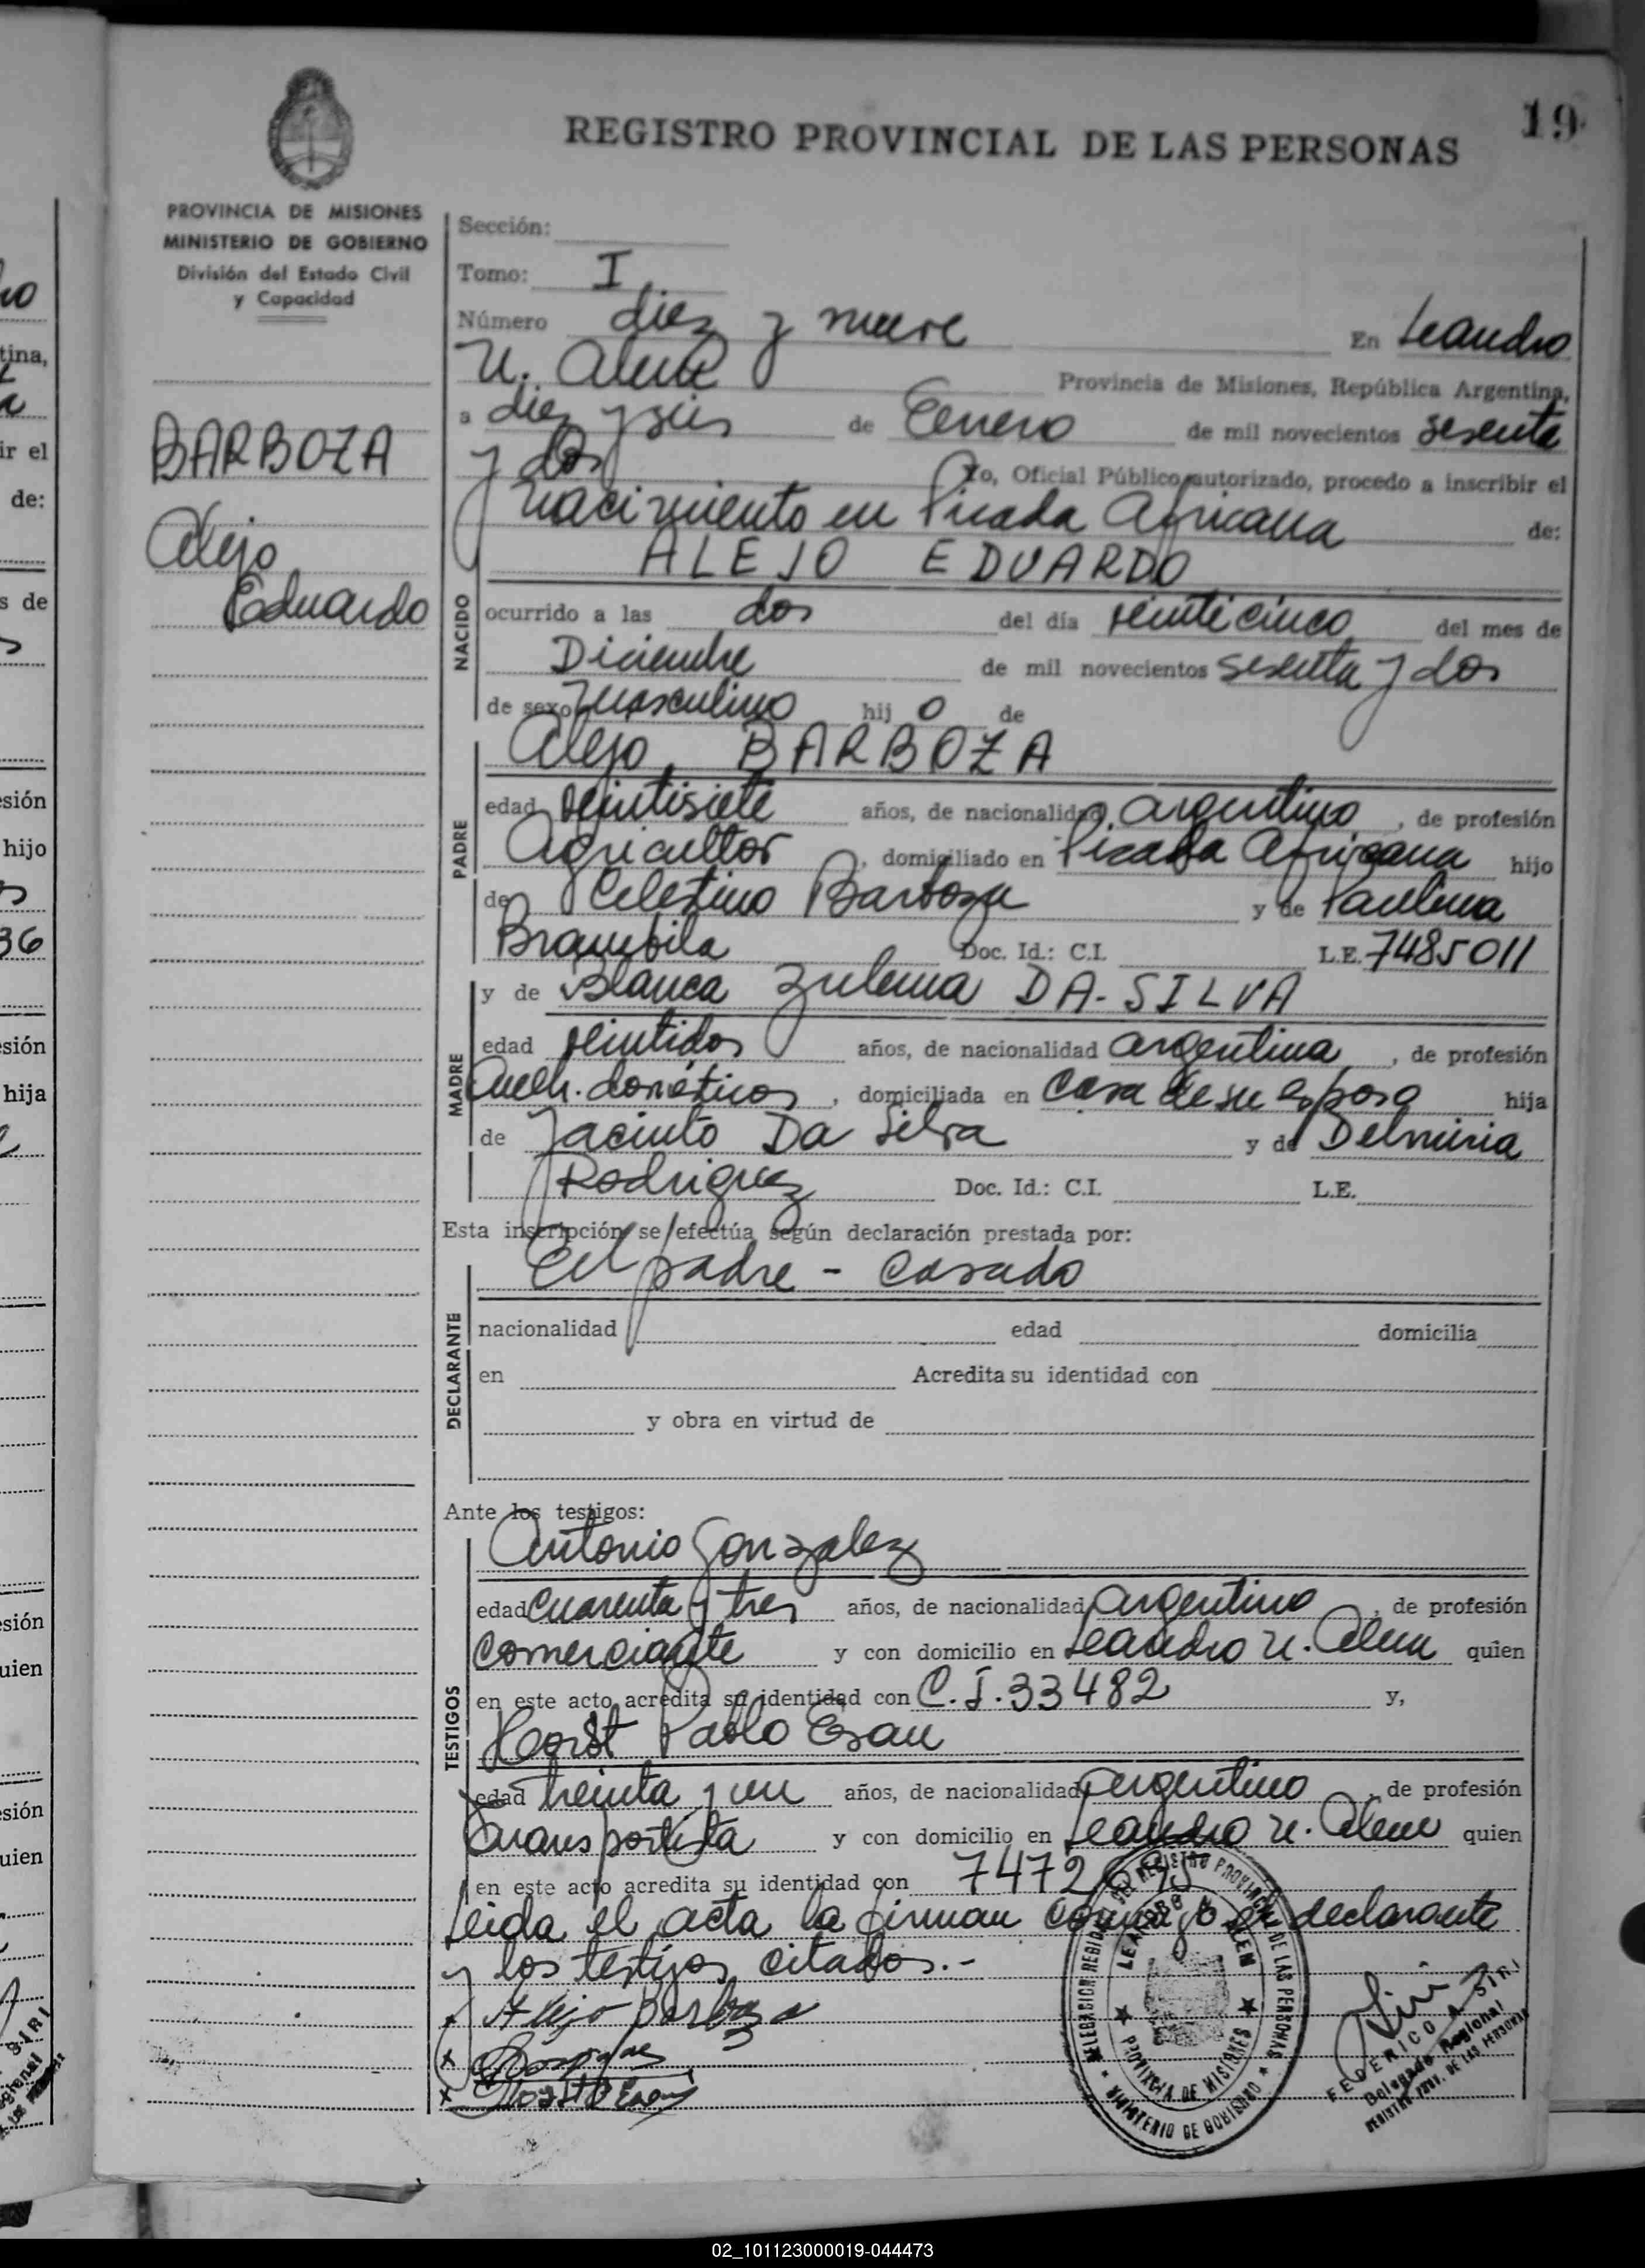 19
REGISTRO PROVINCIAL DE LAS PERSONAS
PROVINCIA DE MISIONES
MINISTERIO DE GOBIERNO
División del Estado Civil
y Capacidad
BARBOZA
Alejo
Eduardo
Sección:
Tomo: I
Número diez y nueve En Leandro
N. Alem Provincia de Misiones, República Argentina,
a diez y seis de Enero de mil novecientos sesenta
y dos Yo, Oficial Público autorizado, procedo a inscribir el
nacimiento en Picada Africana de:
ALEJO EDUARDO
NACIDO
ocurrido a las dos del día veinticinco del mes de
Diciembre de mil novecientos sesenta y dos
de sexo masculino hij o de
Alejo BARBOZA
PADRE
edad veintisiete años, de nacionalidad argentino, de profesión
Agricultor, domiciliado en Picada Africana hijo
de Celestino Barboza y de Paulina
Brambila Doc. Id.: C.I. L.E. 7485011
y de Blanca Zulema DA-SILVA
MADRE
edad veintidos años, de nacionalidad argentina, de profesión
domésticos, domiciliada en casa de su esposo hija
de Jacinto Da Silva y de Delmiria
Rodriguez Doc. Id.: C.I. L.E.
Esta inscripción se efectúa según declaración prestada por:
El padre - casado
DECLARANTE
nacionalidad edad domicilia
en Acredita su identidad con
y obra en virtud de
Ante los testigos:
Antonio Gonzalez
TESTIGOS
edad cuarenta y tres años, de nacionalidad argentino, de profesión
comerciante y con domicilio en Leandro N. Alem quien
en este acto acredita su identidad con C.I. 33482 y,
Horst Pablo Esau
edad treinta y un años, de nacionalidad argentino, de profesión
transportista y con domicilio en Leandro N. Alem quien
en este acto acredita su identidad con
Leida el acta la firman el declarante
y los testigos citados.-
x Alejo Barboza
x
x
LEANDRO N. ALEM
PROVINCIA DE MISIONES
MINISTERIO DE GOBIERNO
FEDERICO A SIRI
Delegado Regional
REGISTRO PROV. DE LAS PERSONAS
02_101123000019-044473